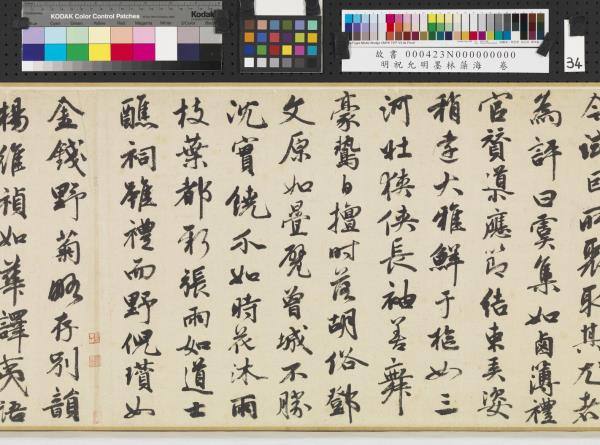 KODAK Color Control Patches
Kodak
故書 000423N000000000
明祝允明墨林藻海 卷
34
取其尤者
為評曰虞集如鹵簿禮
官贊導應節結束姿
稍乖大雅鮮于樞如三
河壯狹俠長袖善舞
豪鷙自擅時落胡俗鄧
文原如疊甓曾城不勝
沈實饒介如時花沐雨
枝葉都新張雨如道士
醮祠雖禮而野倪瓚如
金錢野菊略存別韻
楊維禎如華譯夷語